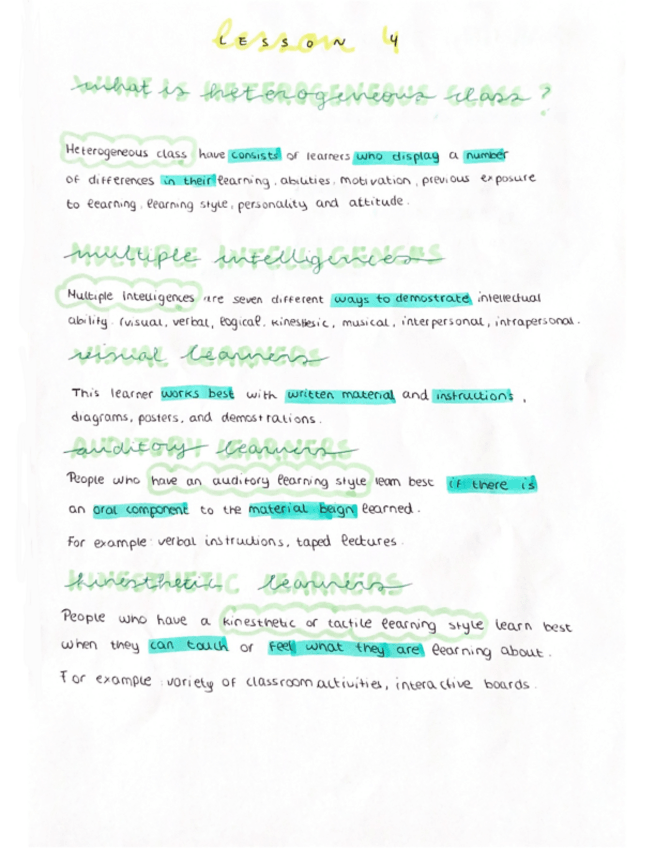 LESSON 4
what is heterogeneous class?
Heterogeneous class have consists of learners who display a number
of differences in their learning, abilities, motivation, previous exposure
to learning, learning style, personality and attitude.
multiple intelligences
Multiple Intelligences are seven different ways to demostrate intellectual
ability. (visual, verbal, logical, kinesthesic, musical, interpersonal, intrapersonal.
visual learners
This learner works best with written material and instructions,
diagrams, posters, and demostrations.
auditory learners
People who have an auditory learning style learn best if there is
an oral component to the material beign learned.
For example: verbal instructions, taped lectures.
kinesthetic learners
People who have a kinesthetic or tactile learning style learn best
when they can touch or feel what they are learning about.
For example: variety of classroom activities, interactive boards.